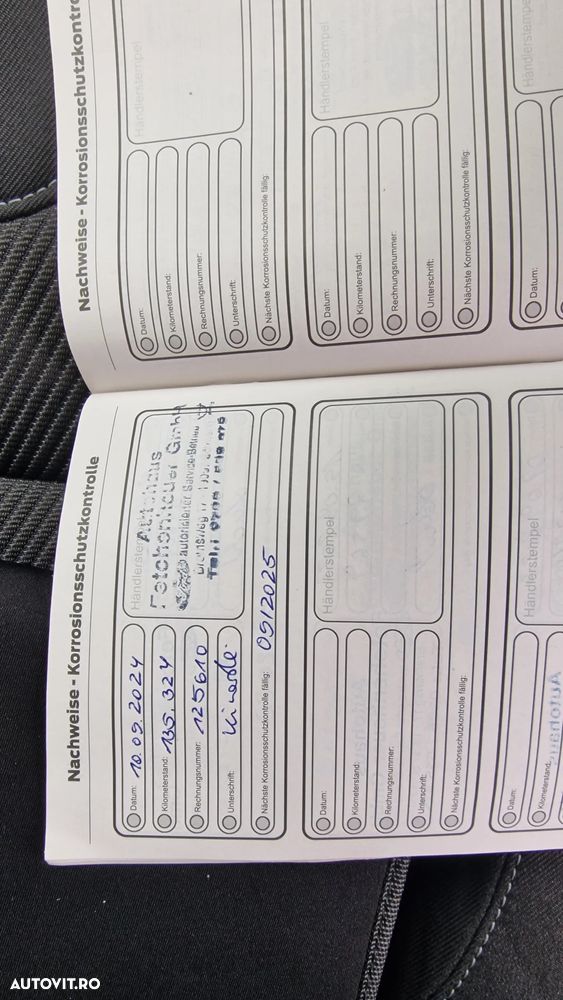 Nachweise - Korrosionsschutzkontrolle
Datum: 10.09.2024
Kilometerstand: 135.324
Rechnungsnummer: 125610
Unterschrift:
Nächste Korrosionsschutzkontrolle fällig: 09/2025
Händlerstempel
Autohaus
GmbH
autorisierter Service-Betrieb
Datum:
Kilometerstand:
Rechnungsnummer:
Unterschrift:
Nächste Korrosionsschutzkontrolle fällig:
Händlerstempel
Datum:
Kilometerstand:
Händlerstempel
Nachweise - Korrosionsschutzkontro
Datum:
Kilometerstand:
Rechnungsnummer:
Unterschrift:
Nächste Korrosionsschutzkontrolle fällig:
Händlerstempel
Datum:
Kilometerstand:
Rechnungsnummer:
Unterschrift:
Nächste Korrosionsschutzkontrolle fällig:
Händlerstempel
Datum:
Händlerstempel
AUTOVIT.RO